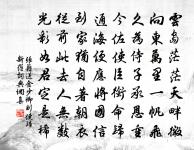 雲島茫茫天畔微
向東萬里一帆飛
久為侍子承恩重
今佐使臣銜命歸
通海便應將國信
到家猶自著朝衣
從前此去人無數
光彩如君定是稀
張籍送金少卿副使歸
新羅